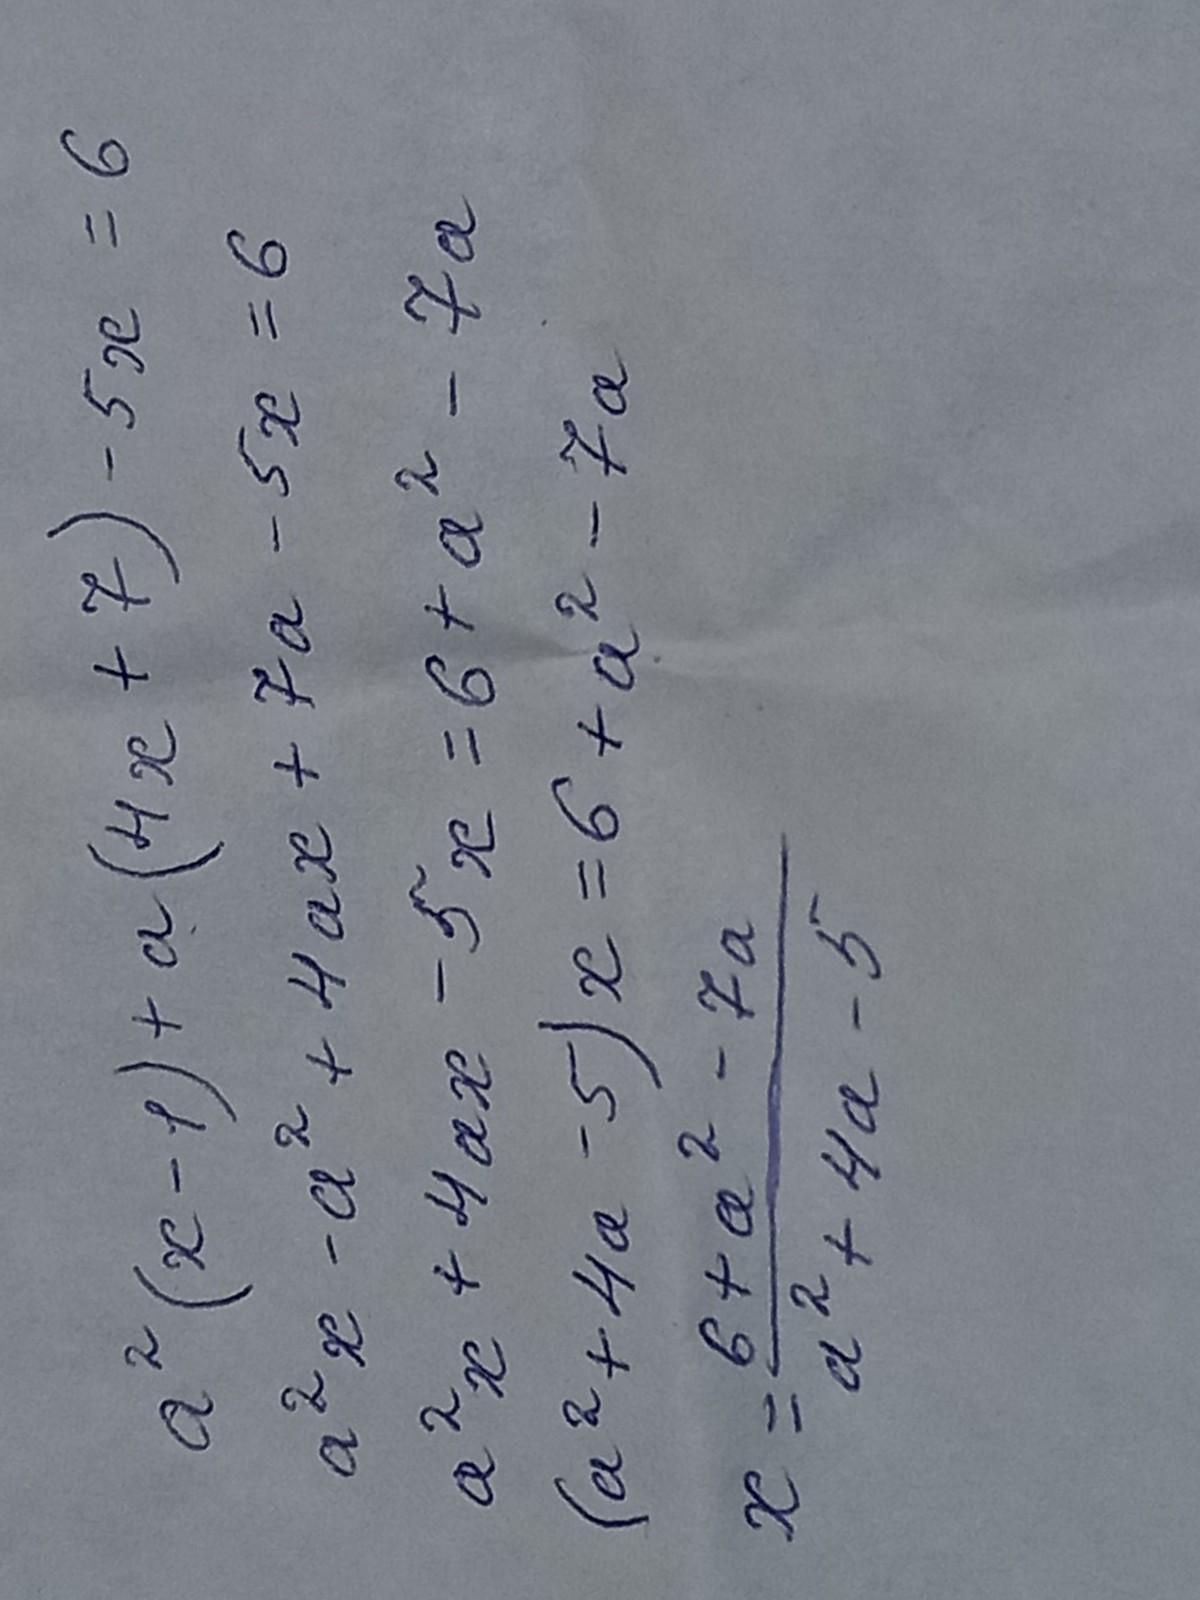 a²(x-1)+a(4x+7)-5x=6
a²x-a²+4ax+7a-5x=6
a²x+4ax-5x=6+a²-7a
(a²+4a-5)x=6+a²-7a
x=\frac{6+a²-7a}{a²+4a-5}